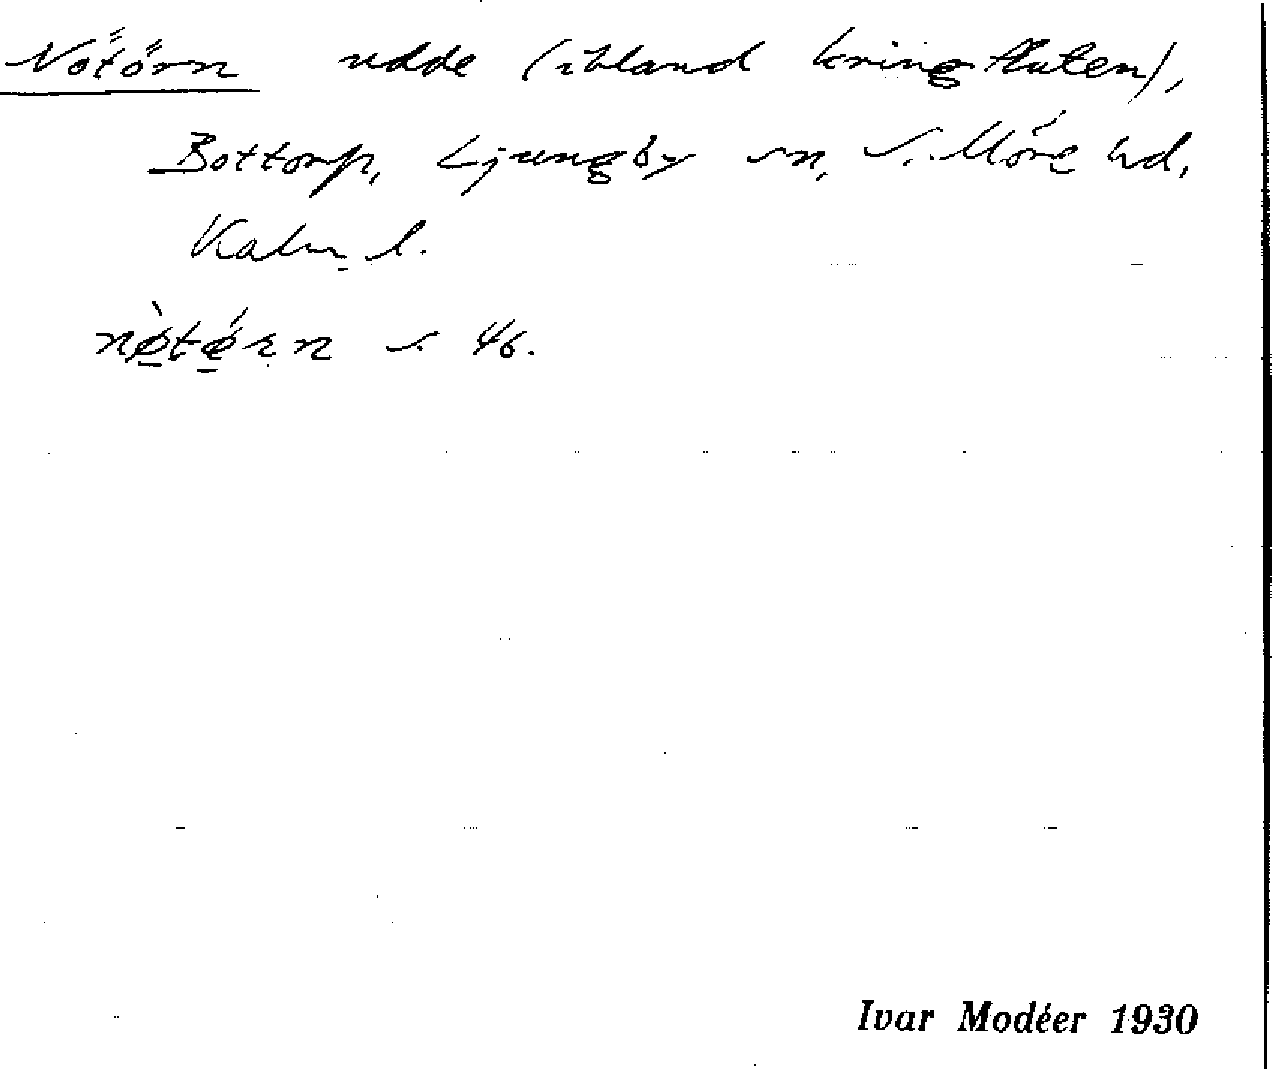 Nötörn udde (ibland kringfluten),
Bottorp, Ljungby sn, S. Möre hd,
Kalm. l.
nø̀tǿrn s. 46.
Ivar Modéer 1930